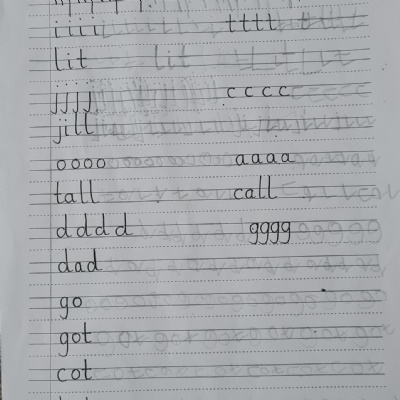 iiii tttt
lit lit
jjjj cccc
jill
oooo aaaa
tall call
dddd gggg
dad
go
got
cot